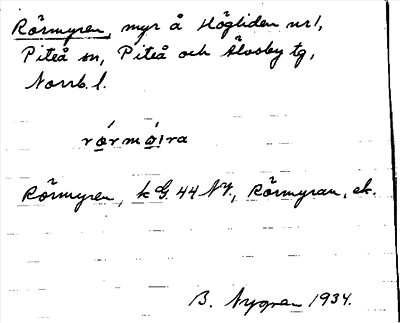 Rörmyren, myr å Högliden nr 1,
Piteå sn, Piteå och Älvsby tg,
Norrb. l.
rörmöira
Rörmyren, k G. 44 NV., Rörmyran, ek.
B. Nygren 1934.